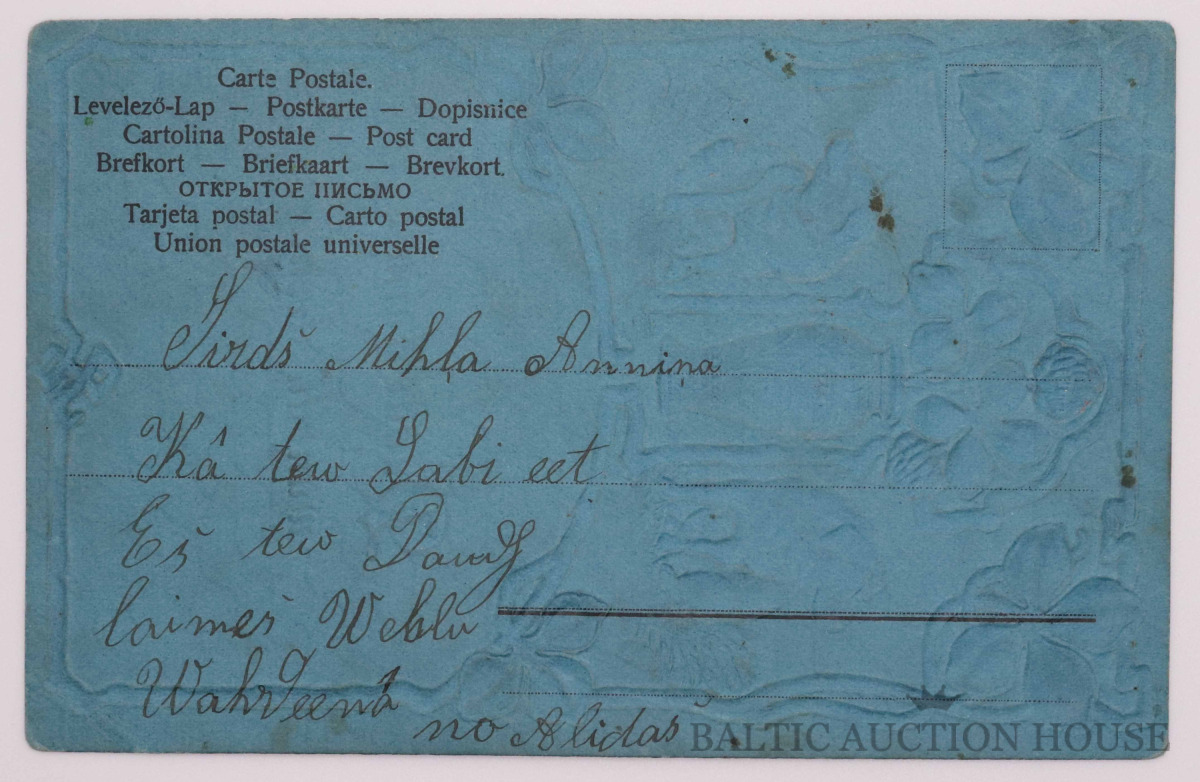 Carte Postale.
Levelező-Lap — Postkarte — Dopisnice
Cartolina Postale — Post card
Brefkort — Briefkaart — Brevkort.
ОТКРЫТОЕ ПИСЬМО
Tarjeta postal — Carto postal
Union postale universelle
Sirdš Mihļa Anniņa
Kâ tew Labi eet
Eš tew Daudſ
laimeš Wehlu
Wahrdeenâ
no Alidaš
BALTIC AUCTION HOUSE